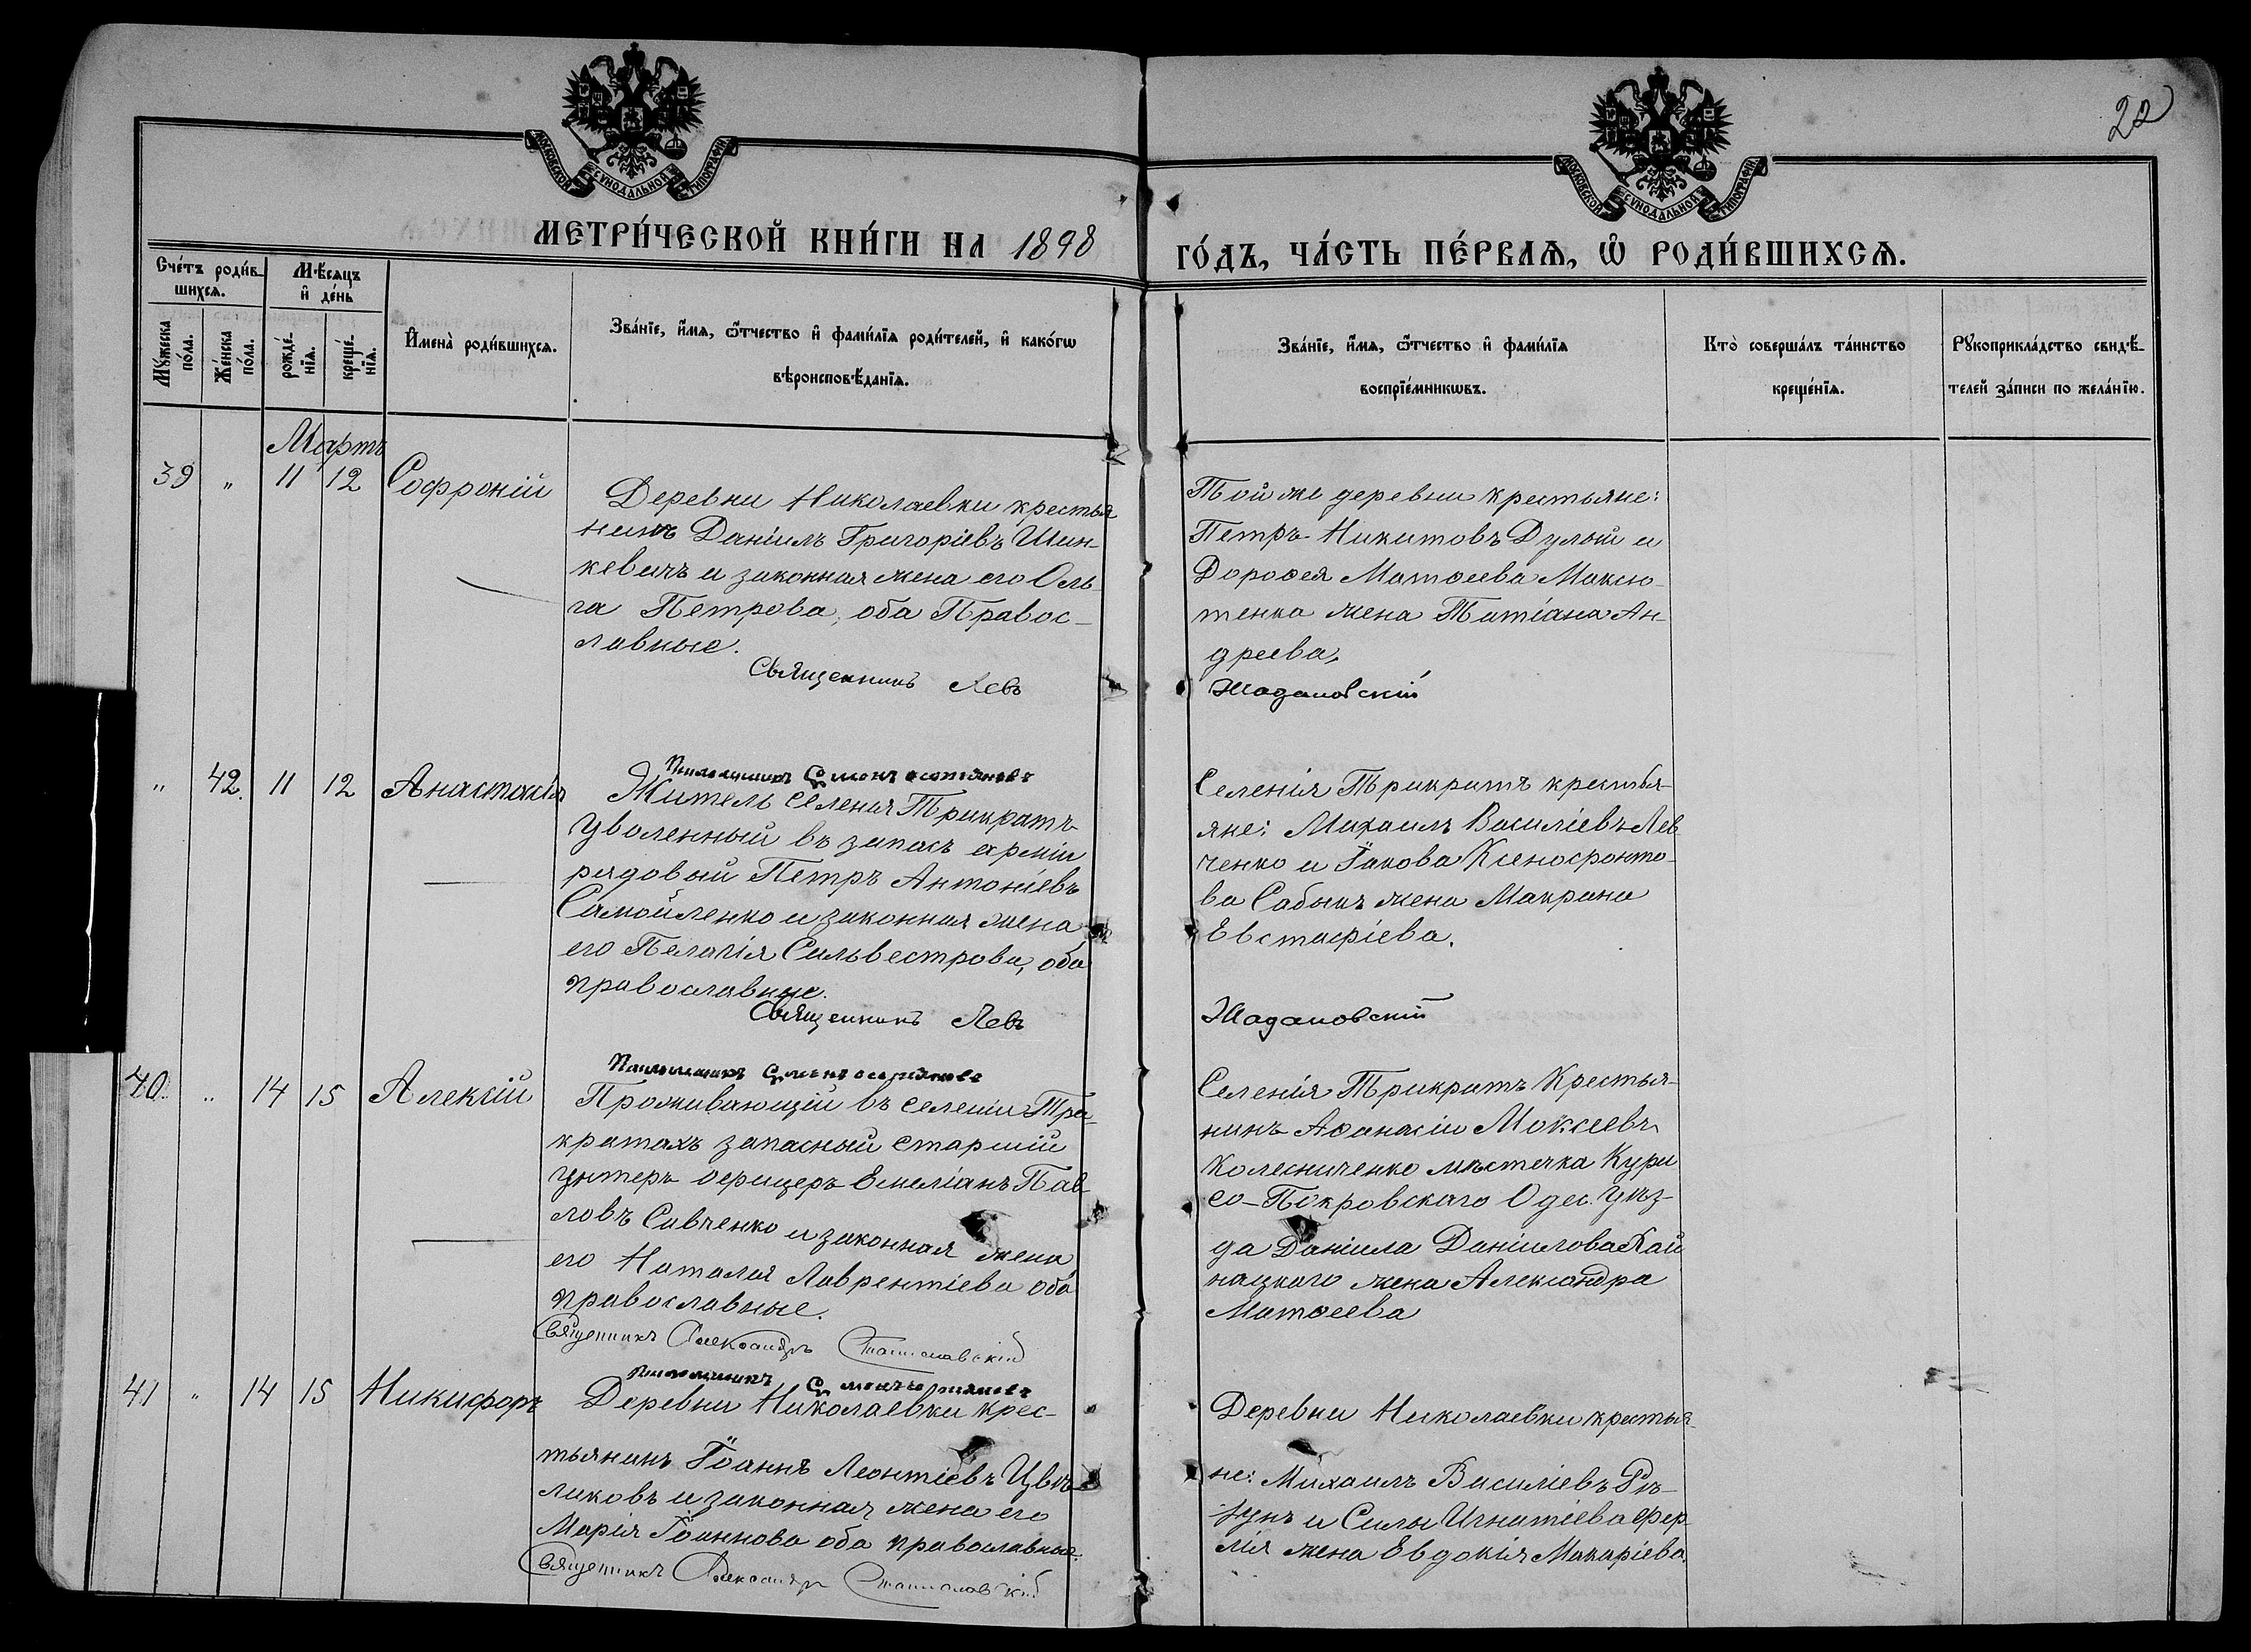 22
МОСКОВСКОЙ СѴНОДАЛЬНОЙ ТИПОГРАФІИ
МОСКОВСКОЙ СѴНОДАЛЬНОЙ ТИПОГРАФІИ
МЕТРИ́ЧЕСКОЙ КНИ́ГИ НА 1898
ГО́ДЪ, ЧА́СТЬ ПЕ́РВАѦ, Ѡ҆ РОДИ́ВШИХСѦ.
Сче́тъ роди́в-
шихсѧ.
Мѣ́сѧцъ
и҆ де́нь
Мꙋ́жеска по́ла.
Же́нска по́ла.
рожде́-
нїѧ.
креще́-
нїѧ.
И҆мена̀ роди́вшихсѧ.
Зва́нїе, и҆́мѧ, ѻ҆́тчество и҆ фами́лїѧ роди́телей, и҆ како́гѡ
вѣроисповѣ́данїѧ.
Зва́нїе, и҆́мѧ, ѻ҆́тчество и҆ фами́лїѧ
воспрїе́мникѡвъ.
Кто̀ соверша́лъ та́инство
креще́нїѧ.
Рꙋкоприкла́дство свидѣ́-
телей за́писи по жела́нїю.
Мартъ
39 " 11 12 Софроній
Деревни Николаевки крестья
нинъ Даніилъ Григоріевъ Шин-
кевичъ и законная жена его Оль-
га Петрова, оба Правос-
лавные.
Священникъ Левъ
Той же деревни крестьяне:
Петръ Никитовъ Дулый и
Дорофея Матфеева Максю-
тенко жена Татіана Ан-
дреева.
Жадановскій
" 42. 11 12 Анастасія
Житель селенія Трикратъ
уволенный въ запасъ арміи
рядовый Петръ Антоніевъ
Самойленко и законная жена
его Пелагія Сильвестрова, оба
православные.
Священникъ Левъ
Селенія Трикратъ крестья-
яне: Михаилъ Василіевъ Лев
ченко и Іакова Ксенофонто-
ва Сабыкъ жена Макрина
Евстафіева.
Жадановскій
40. " 14 15 Алексій
Проживающій въ селеніи Три-
кратахъ запасный старшій
унтеръ офицеръ Емеліанъ Пав
ловъ Савченко и законная жена
его Наталія Лаврентіева оба
православные.
Священникъ Александръ Станиславскій
Селенія Трикратъ Крестья-
нинъ Афанасій Мокіеевъ
Колесниченко мѣстечка Кури
со-Покровскаго Одес. Уѣз-
да Даніила Даніилова Кай
нацкаго жена Александра
Матфеева
41 " 14 15 Никифоръ
Деревни Николаевки крес-
тьянинъ Іоаннъ Леонтіевъ Цвѣ-
ликовъ и законная жена его
Марія Іоаннова оба православные.
Священникъ Александръ Станиславскій
Деревни Николаевки крестья-
не: Михаилъ Василіевъ Рѣ-
зунъ и Силы Игнатіева Фер-
лія жена Евдокія Макаріева.